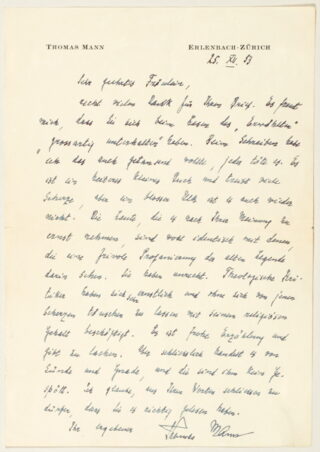 THOMAS MANN ERLENBACH-ZÜRICH
25. XII. 53
Sehr geehrtes Fräulein,
recht vielen Dank für Ihren Brief. Es freut
mich, dass Sie sich beim Lesen des "Erwählten"
"grossartig unterhalten" haben. Beim Schreiben habe
ich das auch getan und wollte, jeder täte es. Es
ist ein heiteres kleines Buch und treibt viele
Scherze, aber ein blosser Ulk ist es auch wieder
nicht. Die Leute, die es nach Ihrer Meinung zu
ernst nehmen, sind wohl identisch mit denen,
die eine frivole Profanierung der alten Legende
darin sehen. Sie haben unrecht. Theologische Kri-
tiker haben sich ernstlich und ohne sich von jenen
Scherzen täuschen zu lassen mit seinem religiösen
Gehalt beschäftigt. Es ist frohe Erzählung und
gibt zu lachen. Aber schliesslich handelt es von
Sünde und Gnade, und die sind kein Ge-
spött. Ich glaube, aus Ihren Worten schliessen zu
dürfen, dass Sie es richtig gelesen haben.
Ihr ergebener Thomas Mann